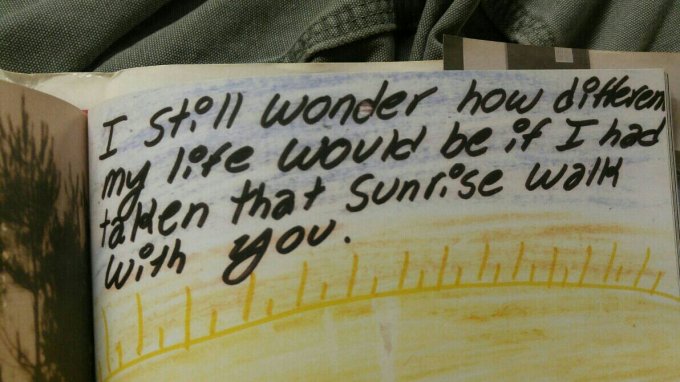 I still wonder how differen
my life would be if I had
taken that sunrise walk
with you.